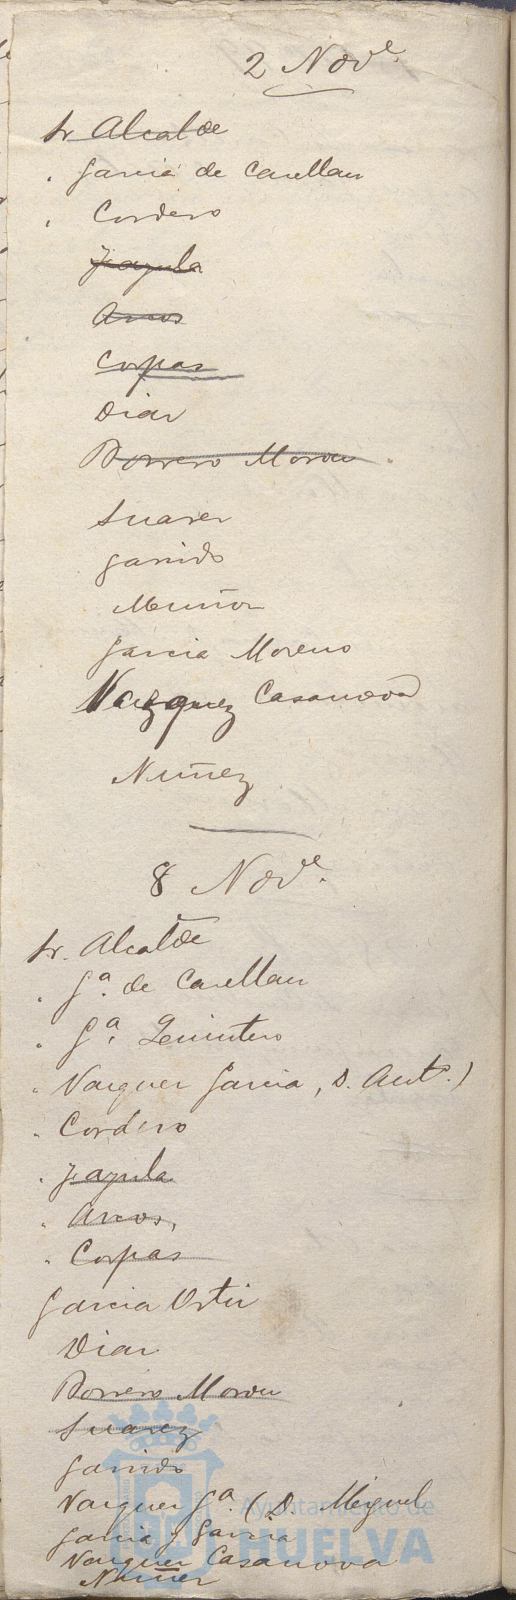 2 Nove.
Sr. Alcalde
Garcia de Casellan
Cordero
Jazula
Arcos
Corpas
Diaz
Borrero Moron
Suarez
Garrido
Muñoz
Garcia Moreno
Vazquez Casanova
Nuñez
8 Nove.
Sr. Alcalde
Ga. de Casellan
Ga. Quintero
Vazquez Garcia, D. Anto.)
Cordero
Jazula
Arcos,
Corpas
Garcia Ortiz
Diaz
Borrero Moron
Suarez
Garrido
Vazquez Ga. (D. Miguel
Garcia y Garcia
Vazquez Casanova
Nuñez
Ayuntamiento de
HUELVA